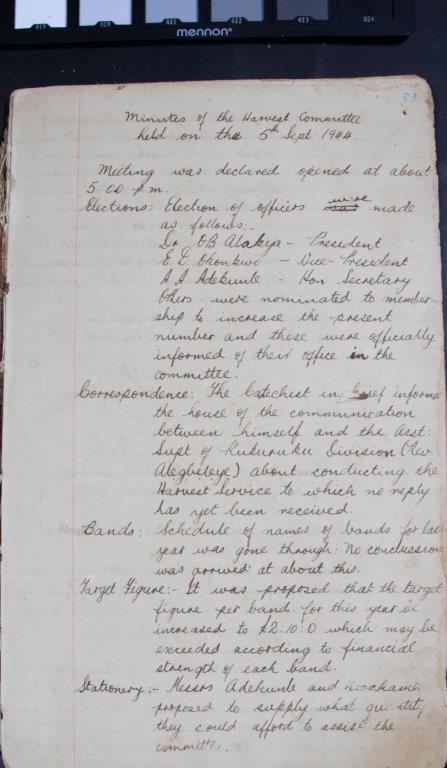 019 020 021 022 023 024
mennon
53
Minutes of the Harvest Committee
held on the 5th Sept. 1944.
Meeting was declared opened at about
5.00 p.m.
Elections: Election of officers were made
as follows:-
Dr. O.B. Alakija - President
E. I. Okonkwo - Vice-President
A. A. Adekunle - Hon Secretary
Others were nominated to member-
ship to increase the present
number and these were officially
informed of their office in the
committee.
Correspondence: The Catechist in brief informe
the house of the communication
between himself and the Asst:
Supt of Kukuruku Division (Rev.
Alegbeleye) about conducting the
Harvest Service to which no reply
has yet been received.
Bands: Schedule of names of bands for las
year was gone through: No conclussion
was arrived at about this.
Target Figure:- It was proposed that the target
figure per band for this year be
increased to £2.10.0 which may be
exceeded according to financial
strength of each band.
Stationery:- Messrs Adekunle and
proposed to supply what quantity
they could afford to assist the
committee.